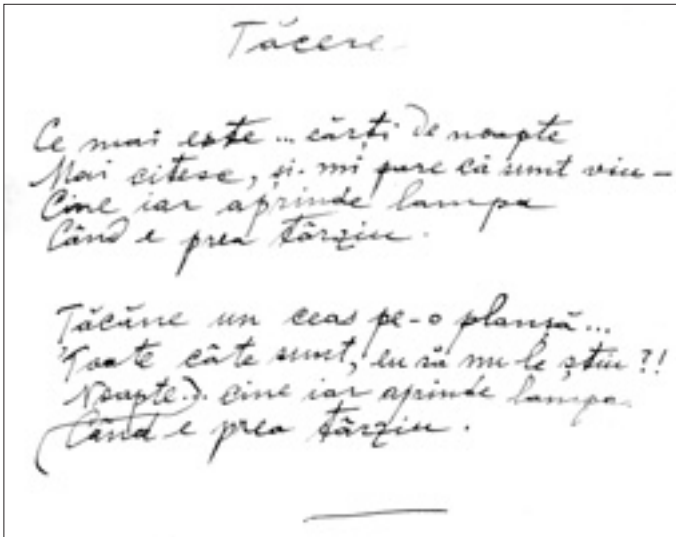 Tăcere
Ce mai este... cărți de noapte
Mai citesc, și-mi pare că sunt viu –
Cine iar aprinde lampa
Când e prea târziu.
Tăcăne un ceas pe-o planșă...
Toate câte sunt, eu să nu le știu?!
Noapte... cine iar aprinde lampa
Când e prea târziu.